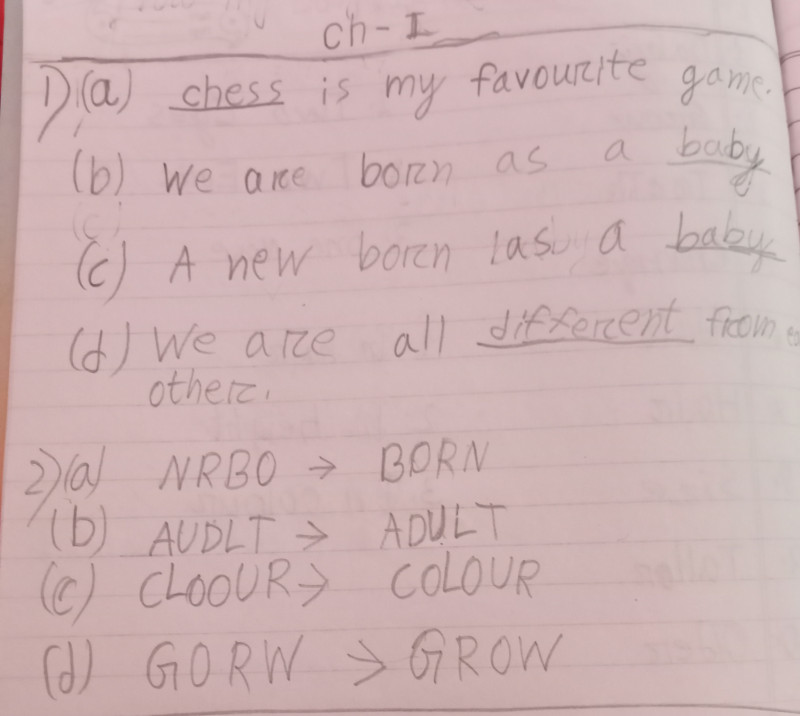 ch-I
1) (a) chess is my favourite game.
(b) we are born as a baby
(c) A new born las a baby
(d) We are all different from
other.
2) (a) NRBO → BORN
(b) AUDLT → ADULT
(c) CLOOUR → COLOUR
(d) GORW → GROW